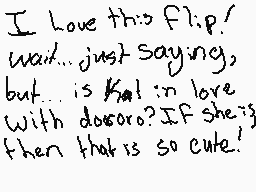 I Love this flip!
wait... just saying,
but... is Kal in love
with dororo? If she is,
then that is so cute!